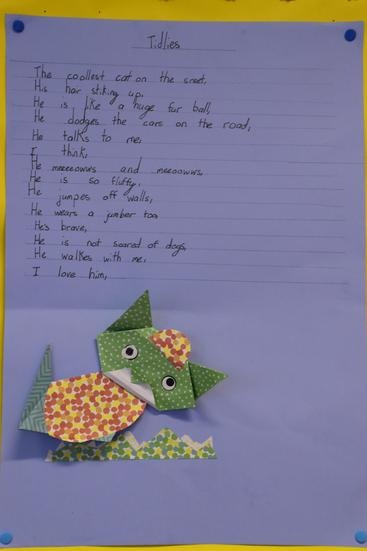 Tidlies
The coollest cat on the sreet,
His hair stiking up,
He is like a huge fur ball,
He dodges the cars on the road,
He talks to me,
I think,
He meeeeowws and meeoowws,
He is so fluffy,
He jumpes off walls,
He wears a jumber too,
He's brave,
He is not scared of dogs,
He walkes with me,
I love him,